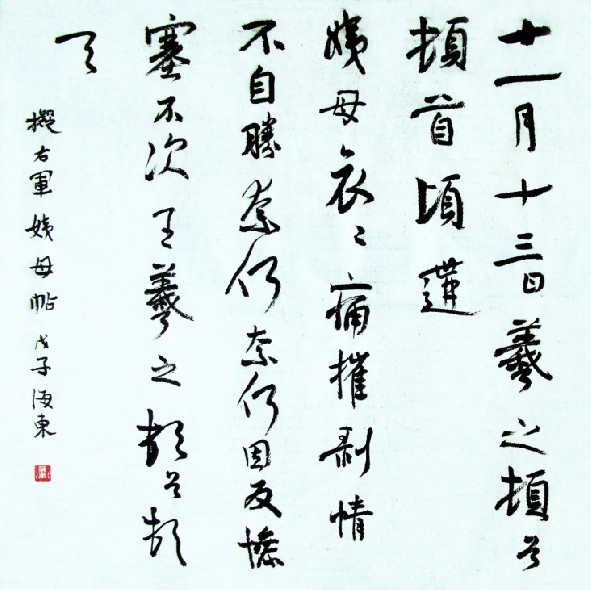 十一月十三日羲之頓首
頓首頃遘
姨母哀〻痛摧剝情
不自勝奈何奈何因反慘
塞不次王羲之頓首頓
首
擬右軍姨母帖戊子海東